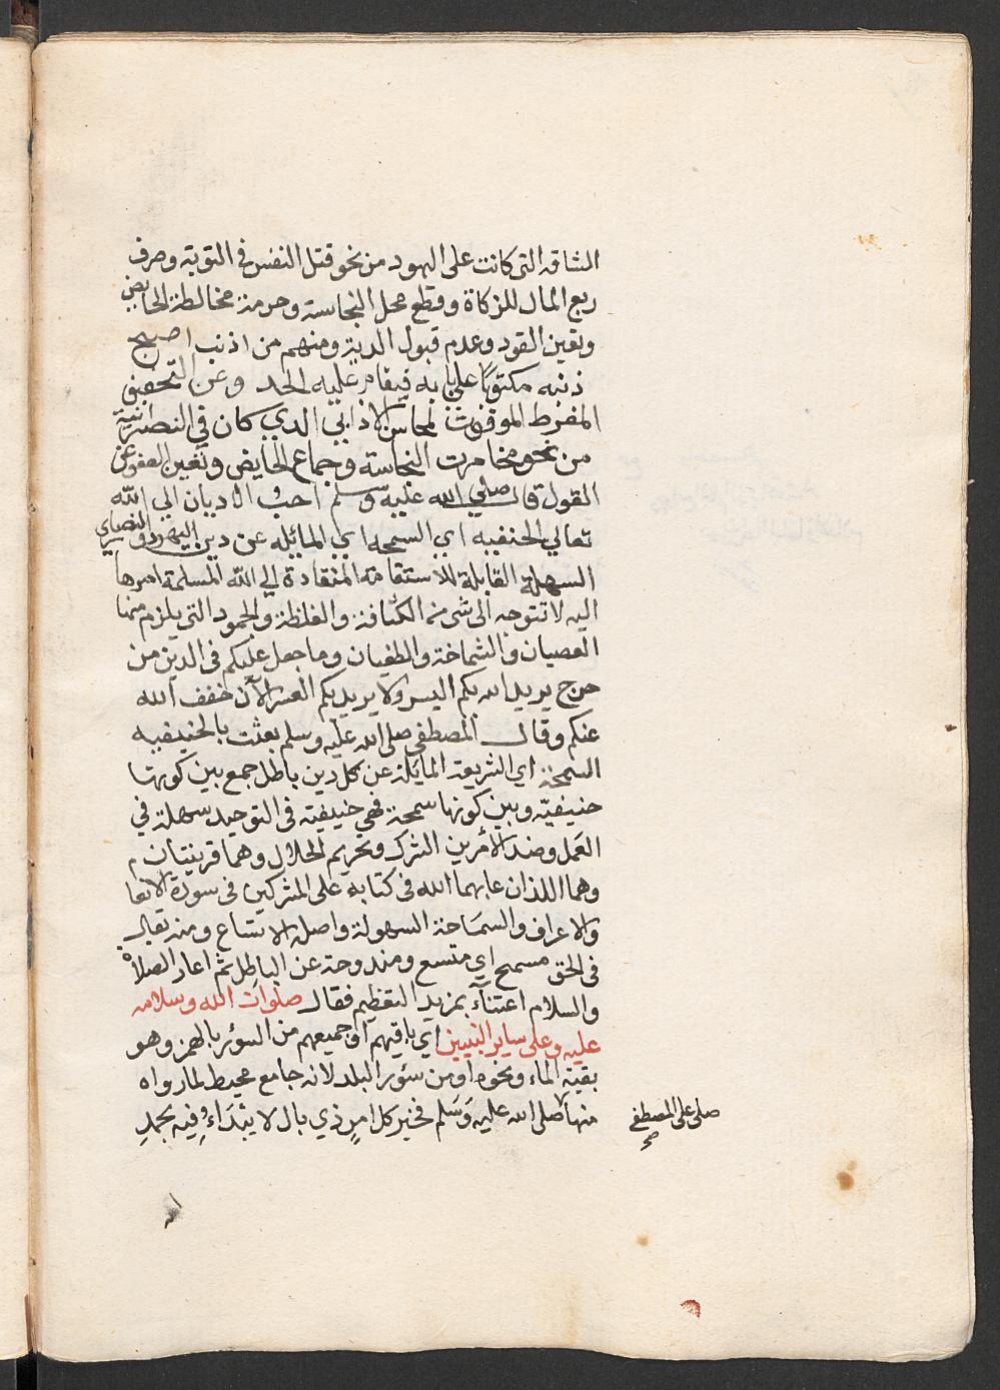 الشاقه التى كانت على اليهود من نحو قتل النفس فى التوبة وصرف
ربع المال للزكاة وقطع محل النجاسة وحرمة مخالطة الحايض
وتعين القود وعدم قبول الدية ومنهم من اذنب اصبح
ذنبه مكتوبًا على بابه فيقام عليه الحد وعن التخفيف
المفرط الموقوت لمحاسن الاداب الذي كان في النصرانية
من نحو مخامرت النجاسة وجماع الحايض وتعين العفو عن
القول قال صلي الله عليه وسلم احب الاديان الي الله
تعالي الحنفيه اي السمحه اي المايله عن دين اليهود والنصاري
السهلة القابلة للاستقامة المنقادة الي الله المسلمة امرها
اليه لا تتوجه الى شى من الكثافة والغلظة والجمود التى يلزم منها
العصيان والشماخة والطغيان وما جعل عليكم فى الدين من
حرج يريد الله بكم اليسر ولا يريد بكم العسر الآن خفف الله
عنكم وقال المصطفى صلى الله عليه وسلم بعثت بالحنيفيه
السمحة اي الشريعة المايلة عن كل دين باطل جمع بين كونها
حنيفيّة وبين كونها سمحة فهى حنيفية فى التوحيد سهلة في
العَمل وضد الأمرين الشرك وتحريم الحلال وهما قرينتان م
وهما اللذان عابهما الله فى كتابه على المشركين فى سورة الانعا
والاعراف والسمَاحة السهولة واصله الاتساع ومنه يقال
فى الحق مسمح اي متسع ومندوحة عن الباطل ثم اعاد الصلاة
والسلام اعتنآء بمزيد التعظيم فقال صلوات الله وسلامه
عليه وعلى ساير النبيين اي باقيهم او جميعهم من السؤر بالهمز وهو
بقية الماء ونحوه او من سؤر البلد لانه جامع محيط لما رواه
منها صلى الله عليه وَسَلم فخبر كل امرٍ ذي بال لا يبْدَاءُ فيه بحمدِ
صلى على المصطفى
صح
الله